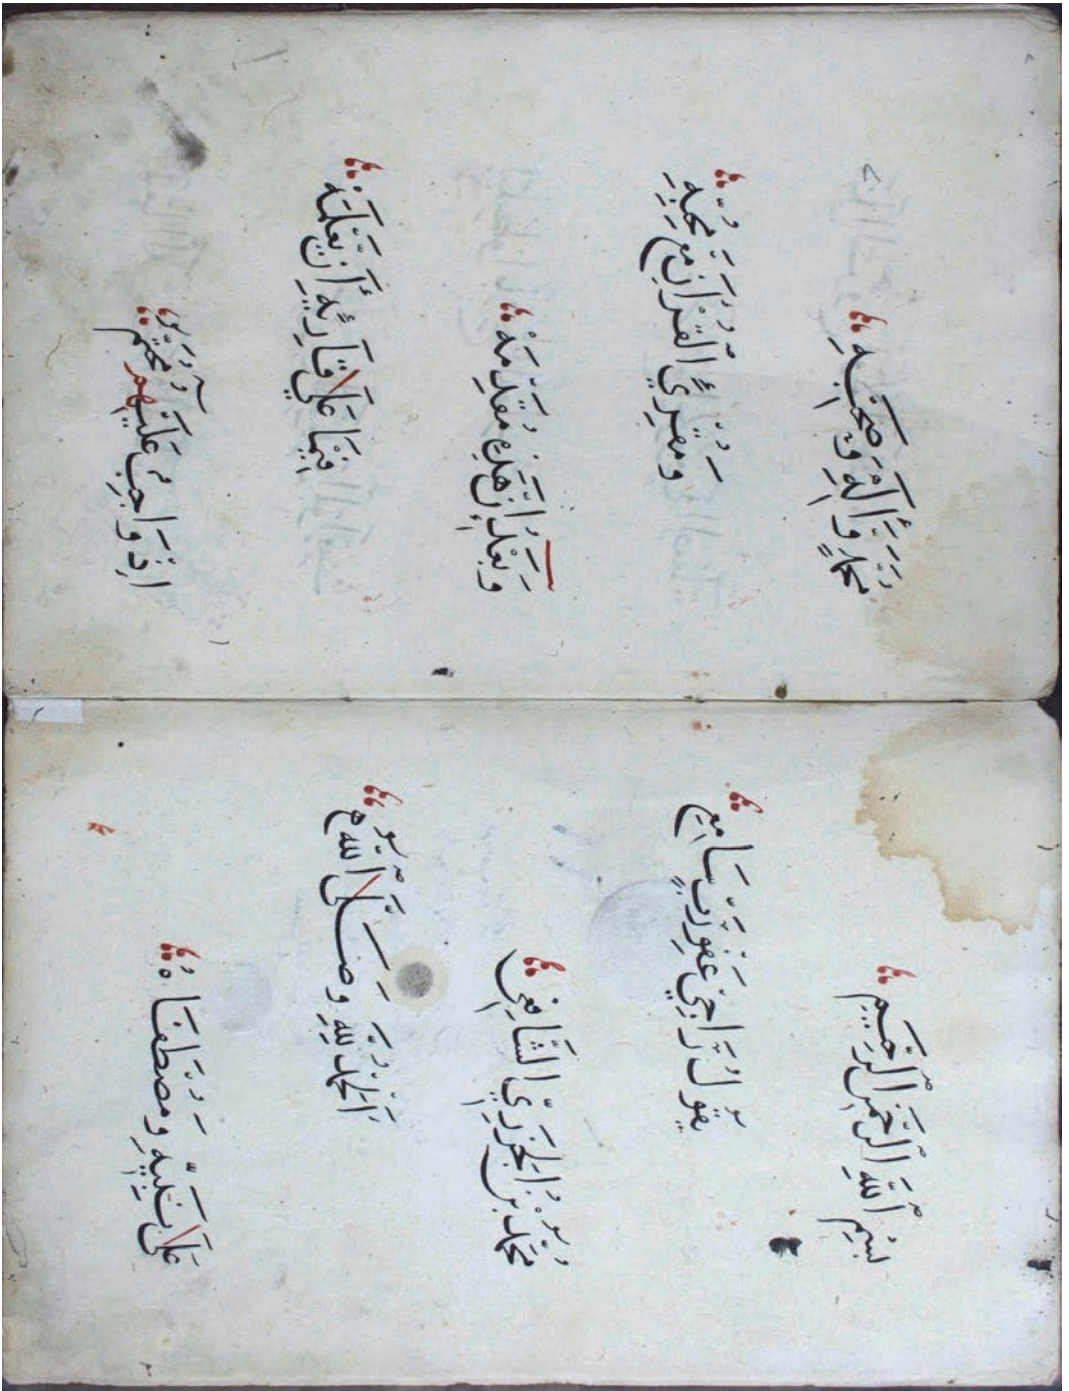 بِسْمِ ٱللّٰهِ ٱلرَّحْمٰنِ ٱلرَّحِيمِ
يَقُولُ رَاجِي عَفْوِ رَبٍّ سَامِعِ
مُحَمَّدُ بْنُ الْجَزَرِيِّ الشَّافِعِي
اَلْحَمْدُ لِلّٰهِ وَصَلَّى اللّٰهُ
عَلَى نَبِيِّهِ وَمُصْطَفَاهُ
مُحَمَّدٍ وَّأٰلِهِ وَصَحْبِهِ
وَمُقْرِئِ ٱلْقُرْاٰنِ مَعْ مُحِبِّهِ
وَبَعْدُ إِنَّ هٰذِهِ مُقَدِّمَهْ
فِيمَا عَلَى قَارِئِهِ أَنْ يَّعْلَمَهْ
اِذْ وَاجِبٌ عَلَيْهِمُ مُحَتَّمُ